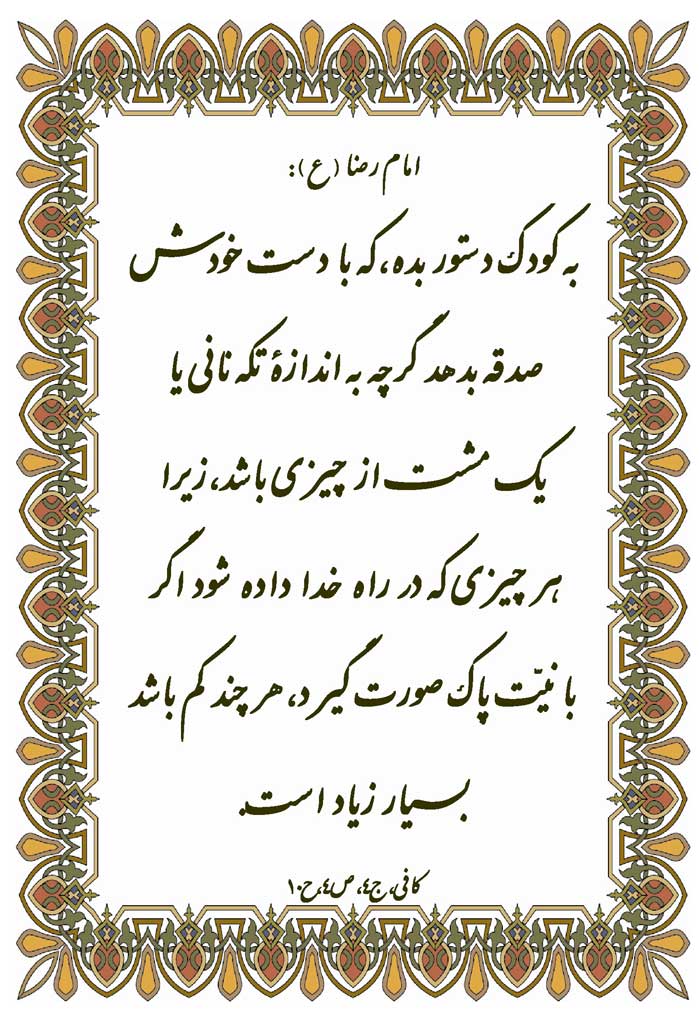 امام رضا (ع):
به کودک دستور بده، که با دست خودش
صدقه بدهد گرچه به اندازهٔ تکه نانی یا
یک مشت از چیزی باشد، زیرا
هر چیزی که در راه خدا داده شود اگر
با نیّت پاک صورت گیرد، هر چند کم باشد
بسیار زیاد است.
کافی، ج٤، ص٤، ح١٠